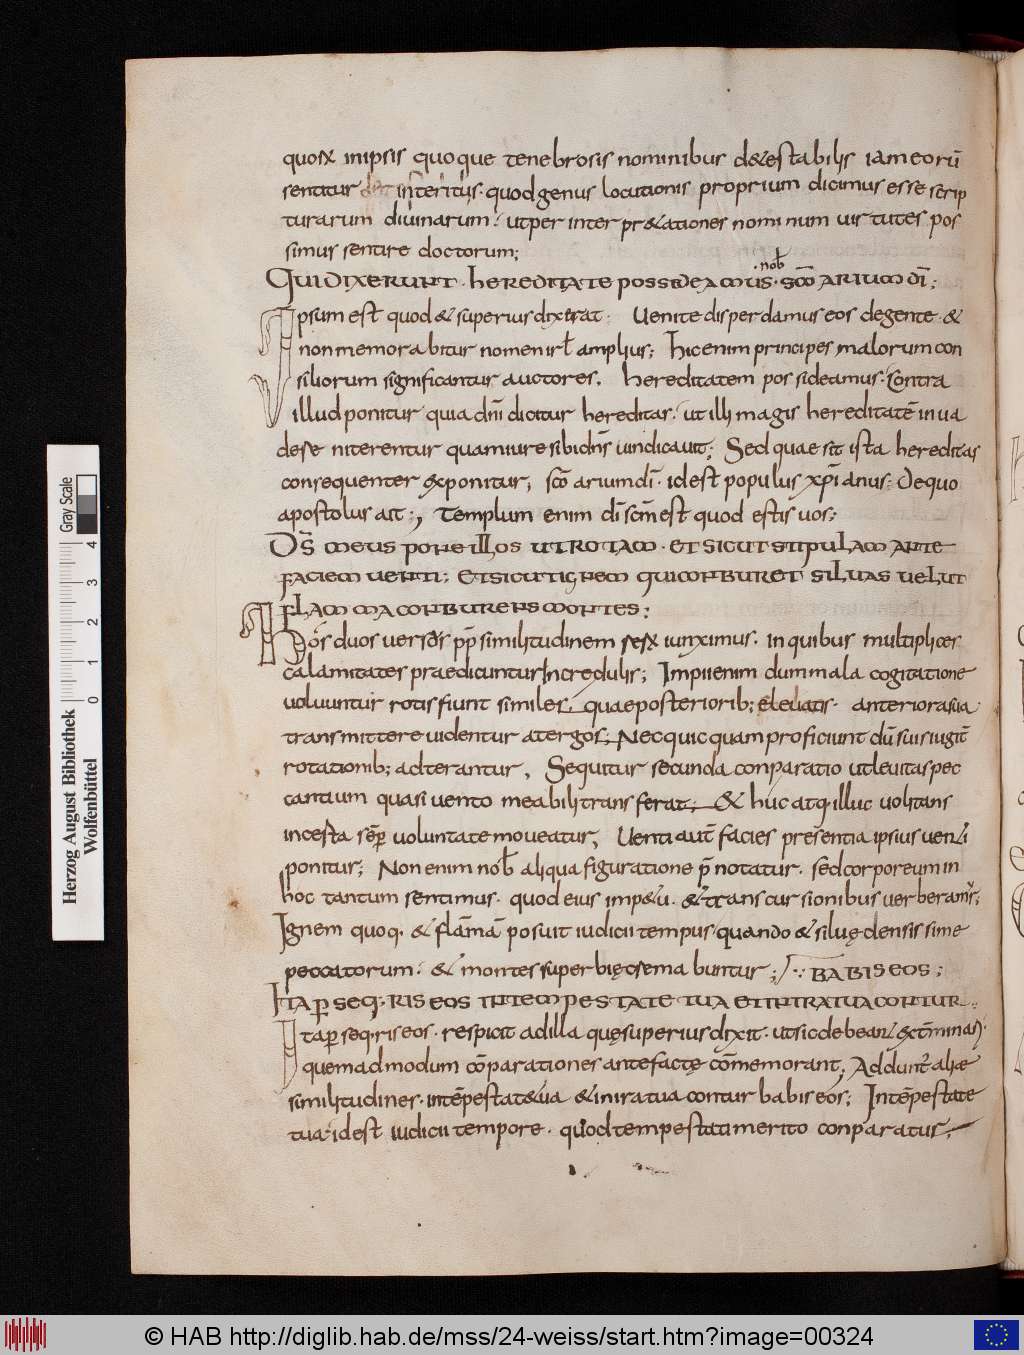 quosꝗ inipsis quoque tenebrosis nominibus d&estabilis iam eorū
sentitur interitus· quod genus locutionis proprium dicimus esse scrip
turarum diuinarum· ut per inter pr&ationes nominum uirtutes pos
simus sentire doctorum;
nob̄
Qui dixerunt· hereditate possideamus· scōarium dī;
Ipsum est quod & superius dixerat· Uenite disperdamus eos de gente· &
non memorabitur nomen isrł amplius; hic enim principes malorum con
siliorum significantur auctores. hereditatem possideamus· Contra
illud ponitur quia dn̄i dicitur hereditas· ut illi magis hereditatē inua
dese niterentur quam iure sibi dn̄s uindicauit; Sed quae sit ista hereditas
consequenter exponitur; scōarium dī· id est populus xp̄ianus· De quo
apostolus ait; Templum enim dī scm̄ est quod estis uos;
Ds̄ meus pone illos ut rotam· et sicut stipulam ante
faciem uenti; Et sicut ignem qui conburet siluas uelut
flamma conburens montes;
hos duos uersus pp̄ similitudinem sesx iunximus· in quibus multiplices
calamitates praedicuntur Incredulis; Impii enim dum mala cogitatione
uoluuntur rotis fiunt similes, quae posteriorib; eleuatis· anteriora sua
transmittere uidentur a tergo; Nec quicquam proficiunt dū suis iugit̄
rotationib; adterantur, Sequitur secunda conparatio ut leuitas pec
cantium quasi uento meabili transferat; & hûc atq· illuc uolitans
incesta sēp uoluntate moueatur, Uenti aut̄ facies presentia ipsius uenti
ponitur; Non enim nob̄ aliqua figuratione p̄notatur· sed corporeum in
hoc tantum sentimus· quod eius imp&u· & transcursionibus uerberamʳ;
Ignem quoq· & flām̄a posuit iudicii tempus· quando & siluę densis sime
peccatorum· & montes superbię crema buntur; BABIS EOS;
Ita pseq·ris eos in tempestate tua et in ira tua contur
Ita pseq·ris eos· respicit ad illa quę superius dixit· ut sic debeant ext̄minari·
quemadmodum cōparationes ante factę cōmemorant, Addunt̄ aliae
similitudines· intēpestat& ua & in ira tua conturbabis eos; Intēpestate
tua· id est iudicii tempore· quod tempestati merito conparatur;
Herzog August Bibliothek
Wolfenbüttel
0 1 2 3 4
Gray Scale
© HAB http://diglib.hab.de/mss/24-weiss/start.htm?image=00324